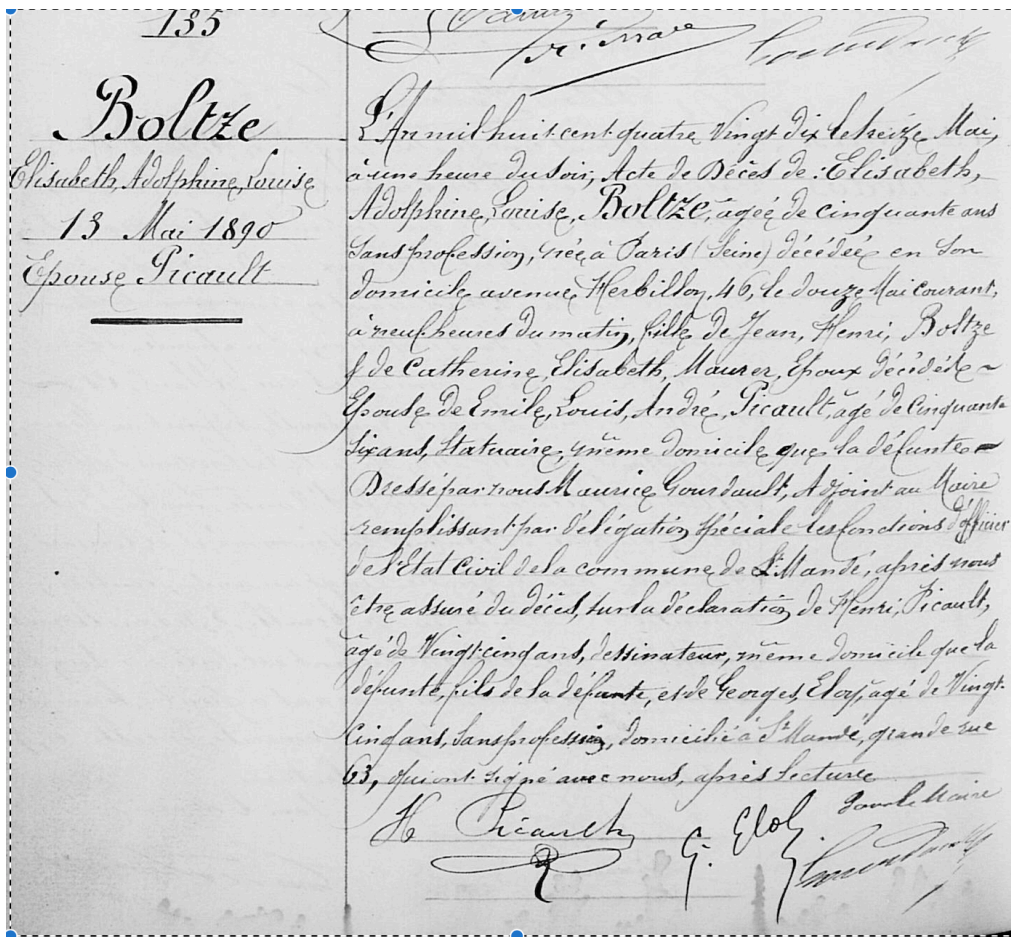 135
Boltze
Elisabeth, Adolphine, Louise
13 Mai 1890
Epouse Picault
L'An mil huit cent quatre Vingt dix le treize Mai,
à une heure du soir, Acte de Décès de : Elisabeth,
Adolphine, Louise, Boltze, âgée de cinquante ans
Sans profession, née à Paris (Seine) décédée en son
domicile avenue Herbillon, 46, le douze Mai courant,
à neuf heures du matin, fille de Jean, Henri, Boltze
& de Catherine, Elisabeth, Maurer, Epoux décédés ~
Epouse de Emile, Louis, André, Picault, âgé de Cinquante
Six ans, Statuaire, même domicile que la défunte ~
Dressé par nous Maurice Gourdault, Adjoint au Maire
remplissant par délégation spéciale les fonctions d'officier
de l'Etat Civil de la commune de St Mandé, après nous
être assuré du décès, sur la déclaration de Henri, Picault,
âgé de Vingt cinq ans, dessinateur, même domicile que la
défunte, fils de la défunte, et de Georges, Eloy, âgé de Vingt-
Cinq ans, Sans profession, domicilié à St Mandé, grande rue
63, qui ont signé avec nous, après lecture
H Picault
G. Eloy
Pour le Maire